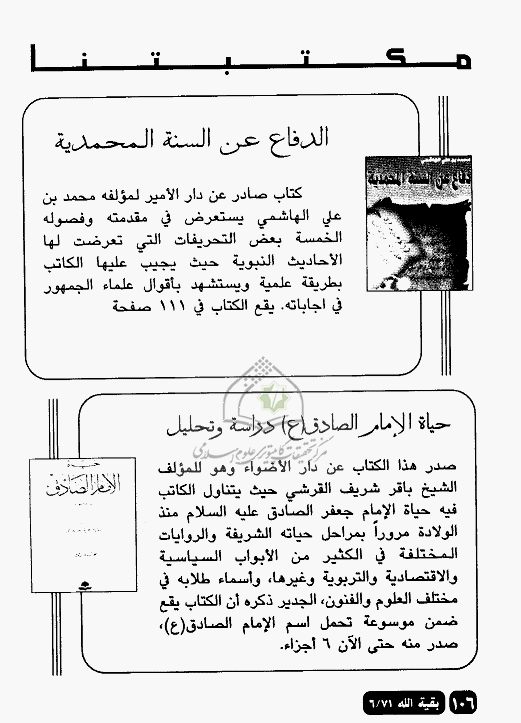 مكتبتنا
الدفاع عن السنة المحمدية
كتاب صادر عن دار الأمير لمؤلفه محمد بن
علي الهاشمي يستعرض في مقدمته وفصوله
الخمسة بعض التحريفات التي تعرضت لها
الأحاديث النبوية حيث يجيب عليها الكاتب
بطريقة علمية ويستشهد بأقوال علماء الجمهور
في اجاباته. يقع الكتاب في ١١١ صفحة
دفاع عن السنة المحمدية
حياة الإمام الصادق(ع) دراسة وتحليل
صدر هذا الكتاب عن دار الأضواء وهو للمؤلف
الشيخ باقر شريف القرشي حيث يتناول الكاتب
فيه حياة الإمام جعفر الصادق عليه السلام منذ
الولادة مروراً بمراحل حياته الشريفة والروايات
المختلفة في الكثير من الأبواب السياسية
والاقتصادية والتربوية وغيرها، وأسماء طلابه في
مختلف العلوم والفنون، الجدير ذكره أن الكتاب يقع
ضمن موسوعة تحمل اسم الإمام الصادق(ع)،
صدر منه حتى الآن ٦ أجزاء.
الإمام الصادق
مركز تحقیقات کامپیوتری علوم اسلامی
١٠٦ بقية الله ٦/٧١